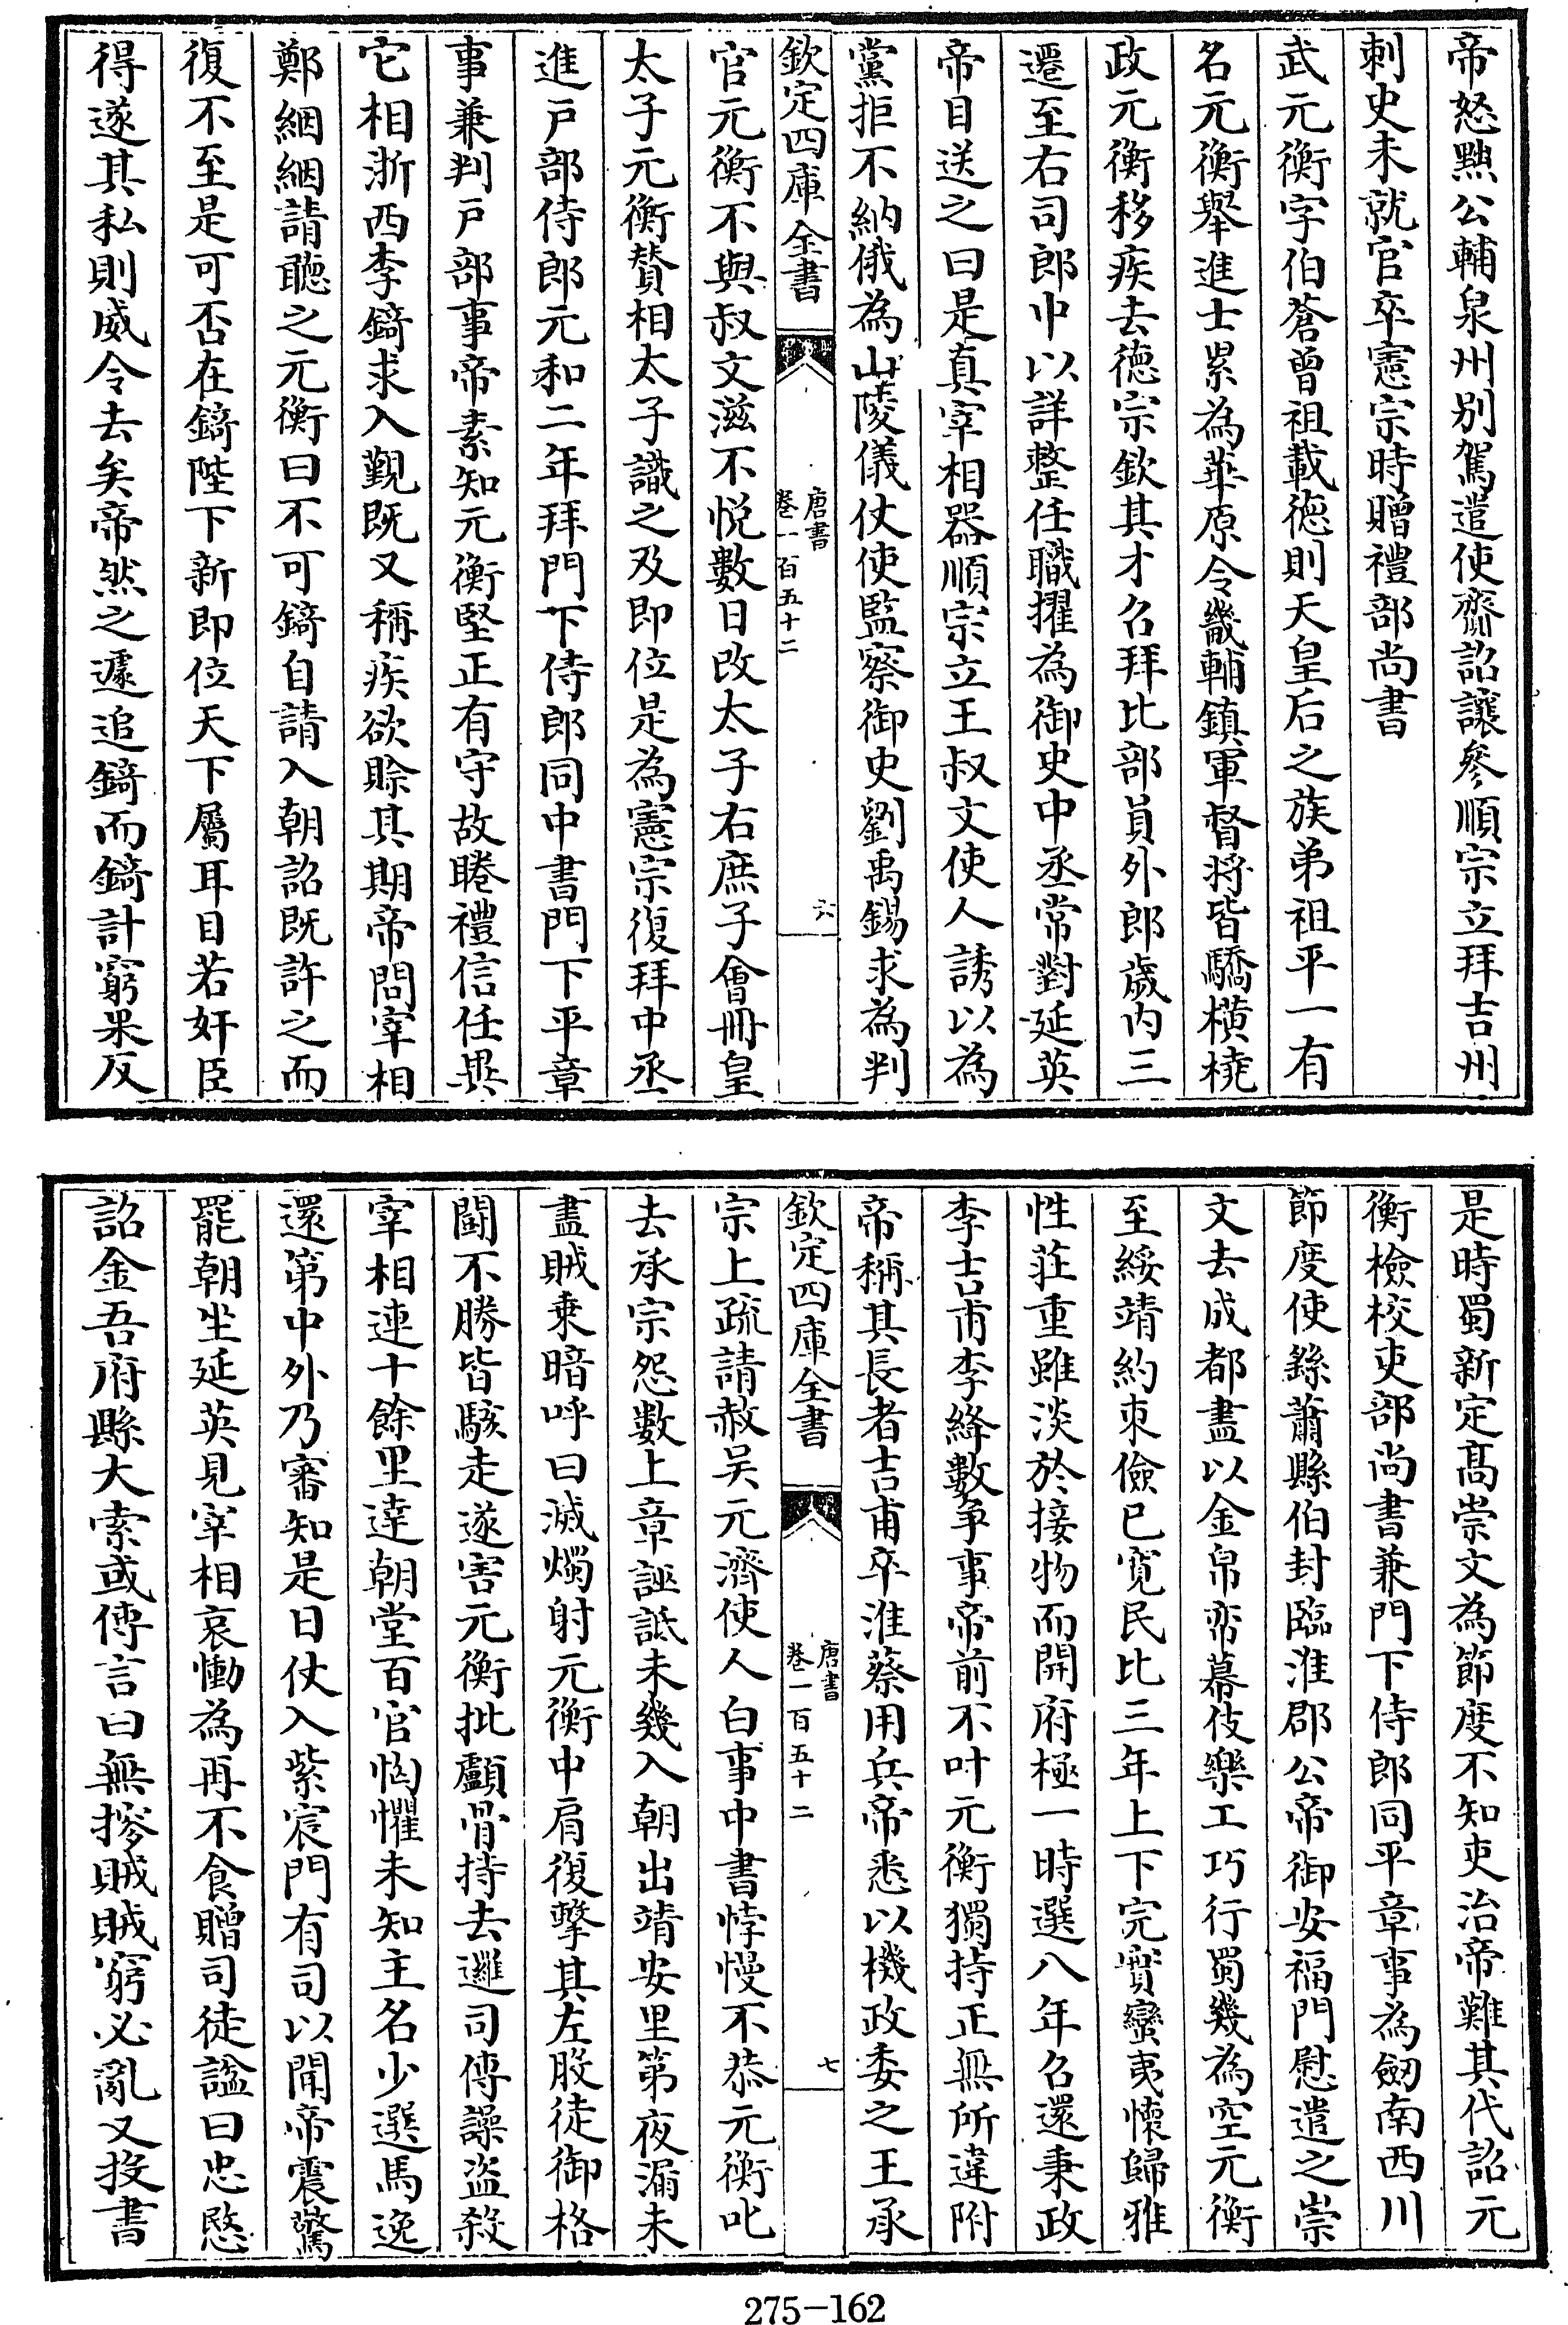 帝怒黜公輔泉州别駕遣使齎詔讓參順宗立拜吉州
刺史未就官卒憲宗時贈禮部尚書
武元衡字伯蒼曾祖載徳則天皇后之族弟祖平一有
名元衡舉進士累為華原令畿輔鎮軍督將皆驕橫橈
政元衡移疾去徳宗欽其才召拜比部員外郎歲内三
遷至右司郎中以詳整任職擢為御史中丞常對延英
帝目送之曰是真宰相器順宗立王叔文使人誘以為
黨拒不納俄為山陵儀仗使監察御史劉禹錫求為判
欽定四庫全書
唐書
卷一百五十二
六
官元衡不與叔文滋不悦數日改太子右庶子會冊皇
太子元衡賛相太子識之及即位是為憲宗復拜中丞
進戸部侍郎元和二年拜門下侍郎同中書門下平章
事兼判戸部事帝素知元衡堅正有守故睠禮信任異
它相浙西李錡求入覲既又稱疾欲賒其期帝問宰相
鄭絪絪請聽之元衡曰不可錡自請入朝詔既許之而
復不至是可否在錡陛下新即位天下屬耳目若奸臣
得遂其私則威令去矣帝然之遽追錡而錡計窮果反
是時蜀新定髙崇文為節度不知吏治帝難其代詔元
衡檢校吏部尚書兼門下侍郎同平章事為劒南西川
節度使繇蕭縣伯封臨淮郡公帝御安福門慰遣之崇
文去成都盡以金帛帟幕伎樂工巧行蜀幾為空元衡
至綏靖約束儉已寛民比三年上下完實蠻夷懷歸雅
性莊重雖淡於接物而開府極一時選八年召還秉政
李吉甫李絳數爭事帝前不叶元衡獨持正無所違附
帝稱其長者吉甫卒淮蔡用兵帝悉以機政委之王承
欽定四庫全書
唐書
卷一百五十二
七
宗上疏請赦吴元濟使人白事中書悖慢不恭元衡叱
去承宗怨數上章誣詆未幾入朝出靖安里第夜漏未
盡賊乗暗呼曰滅燭射元衡中肩復擊其左股徒御格
鬬不勝皆駭走遂害元衡批顱骨持去邏司傳譟盜殺
宰相連十餘里達朝堂百官恟懼未知主名少選馬逸
還第中外乃審知是日仗入紫宸門有司以聞帝震驚
罷朝坐延英見宰相哀慟為再不食贈司徒諡曰忠愍
詔金吾府縣大索或傳言曰無搜賊賊窮必亂又投書
275-162